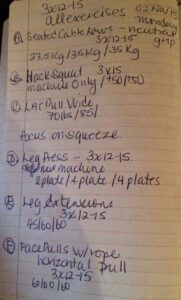 3x12-15 02 Nov 15
all exercises - monday
A) Seated Cable Rows - neutral grip
3x12-15
27.5kg/35kg/35kg
B) Hack Squat 3x15
machine only /+50/+50
C) Lat Pull Wide
70lbs/85/
focus on squeeze
D) Leg Press - 3x12-15
machine
2plate/4plate/4plates
E) Leg extensions
3x12-15
45/60/60
F) Face Pulls w/rope
horizontal pull
3x12-15
60/60/60